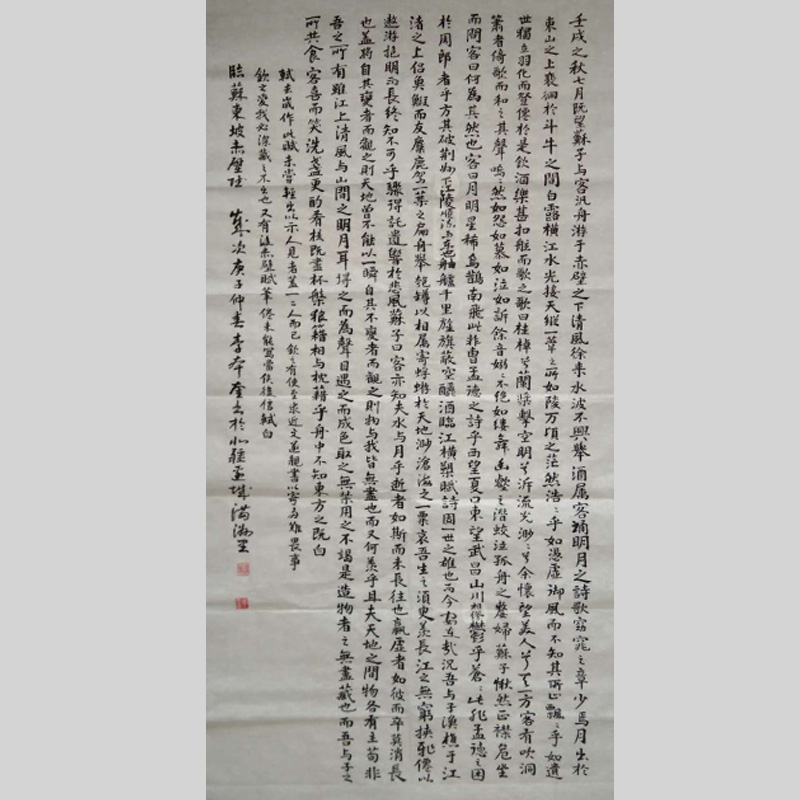 壬戌之秋七月既望蘇子与客汎舟游于赤壁之下清風徐来水波不興舉酒属客誦明月之詩歌窈窕之章少焉月出於
東山之上裵徊於斗牛之間白露橫江水光接天縱一葦之所如陵万頃之茫然浩〻乎如馮虛御風而不知其所止飄〻乎如遺
世獨立羽化而登僊於是飲酒樂甚扣舷而歌之歌曰桂棹兮蘭槳擊空明兮泝流光渺〻兮余懷望美人兮天一方客有吹洞
簫者倚歌而和之其聲嗚〻然如怨如慕如泣如訴餘音嫋〻不絕如縷舞幽壑之潛蛟泣孤舟之嫠婦蘇子愀然正襟危坐
而問客曰何為其然也客曰月明星稀烏鵲南飛此非曹孟德之詩乎西望夏口東望武昌山川相繆鬱乎蒼〻此非孟德之困
於周郎者乎方其破荆州下江陵順流而東也舳艫千里旌旗蔽空釃酒臨江橫槊賦詩固一世之雄也而今安在哉況吾与子漁樵于江
渚之上侣魚鰕而友麋鹿駕一葉之扁舟舉匏罇以相属寄蜉蝣於天地渺滄海之一粟哀吾生之須臾羨長江之無窮挾飛僊以
遨游抱明而長終知不可乎驟得託遺響於悲風蘇子曰客亦知夫水与月乎逝者如斯而未甞往也贏虛者如彼而卒莫消長
也盖將自其變者而觀之則天地曾不能以一瞬自其不變者而觀之則物与我皆無盡也而又何羨乎且夫天地之間物各有主苟非
吾之所有雖
江上清風与山間之明月耳得之而為聲目遇之而成色取之無禁用之不竭是造物者之無盡藏也而吾与子之
所共食客喜而笑洗盞更酌肴核既盡杯槃狼籍相与枕藉乎舟中不知東方之既白
軾去歲作此賦未嘗輕出以示人見者盖一二人而已欽之有使至求近文遂親書以寄多難畏事
欽之愛我必深藏之不出也又有後赤壁賦筆倦未能寫當俟後信軾白
臨蘇東坡赤壁賦 歲次庚子仲春李